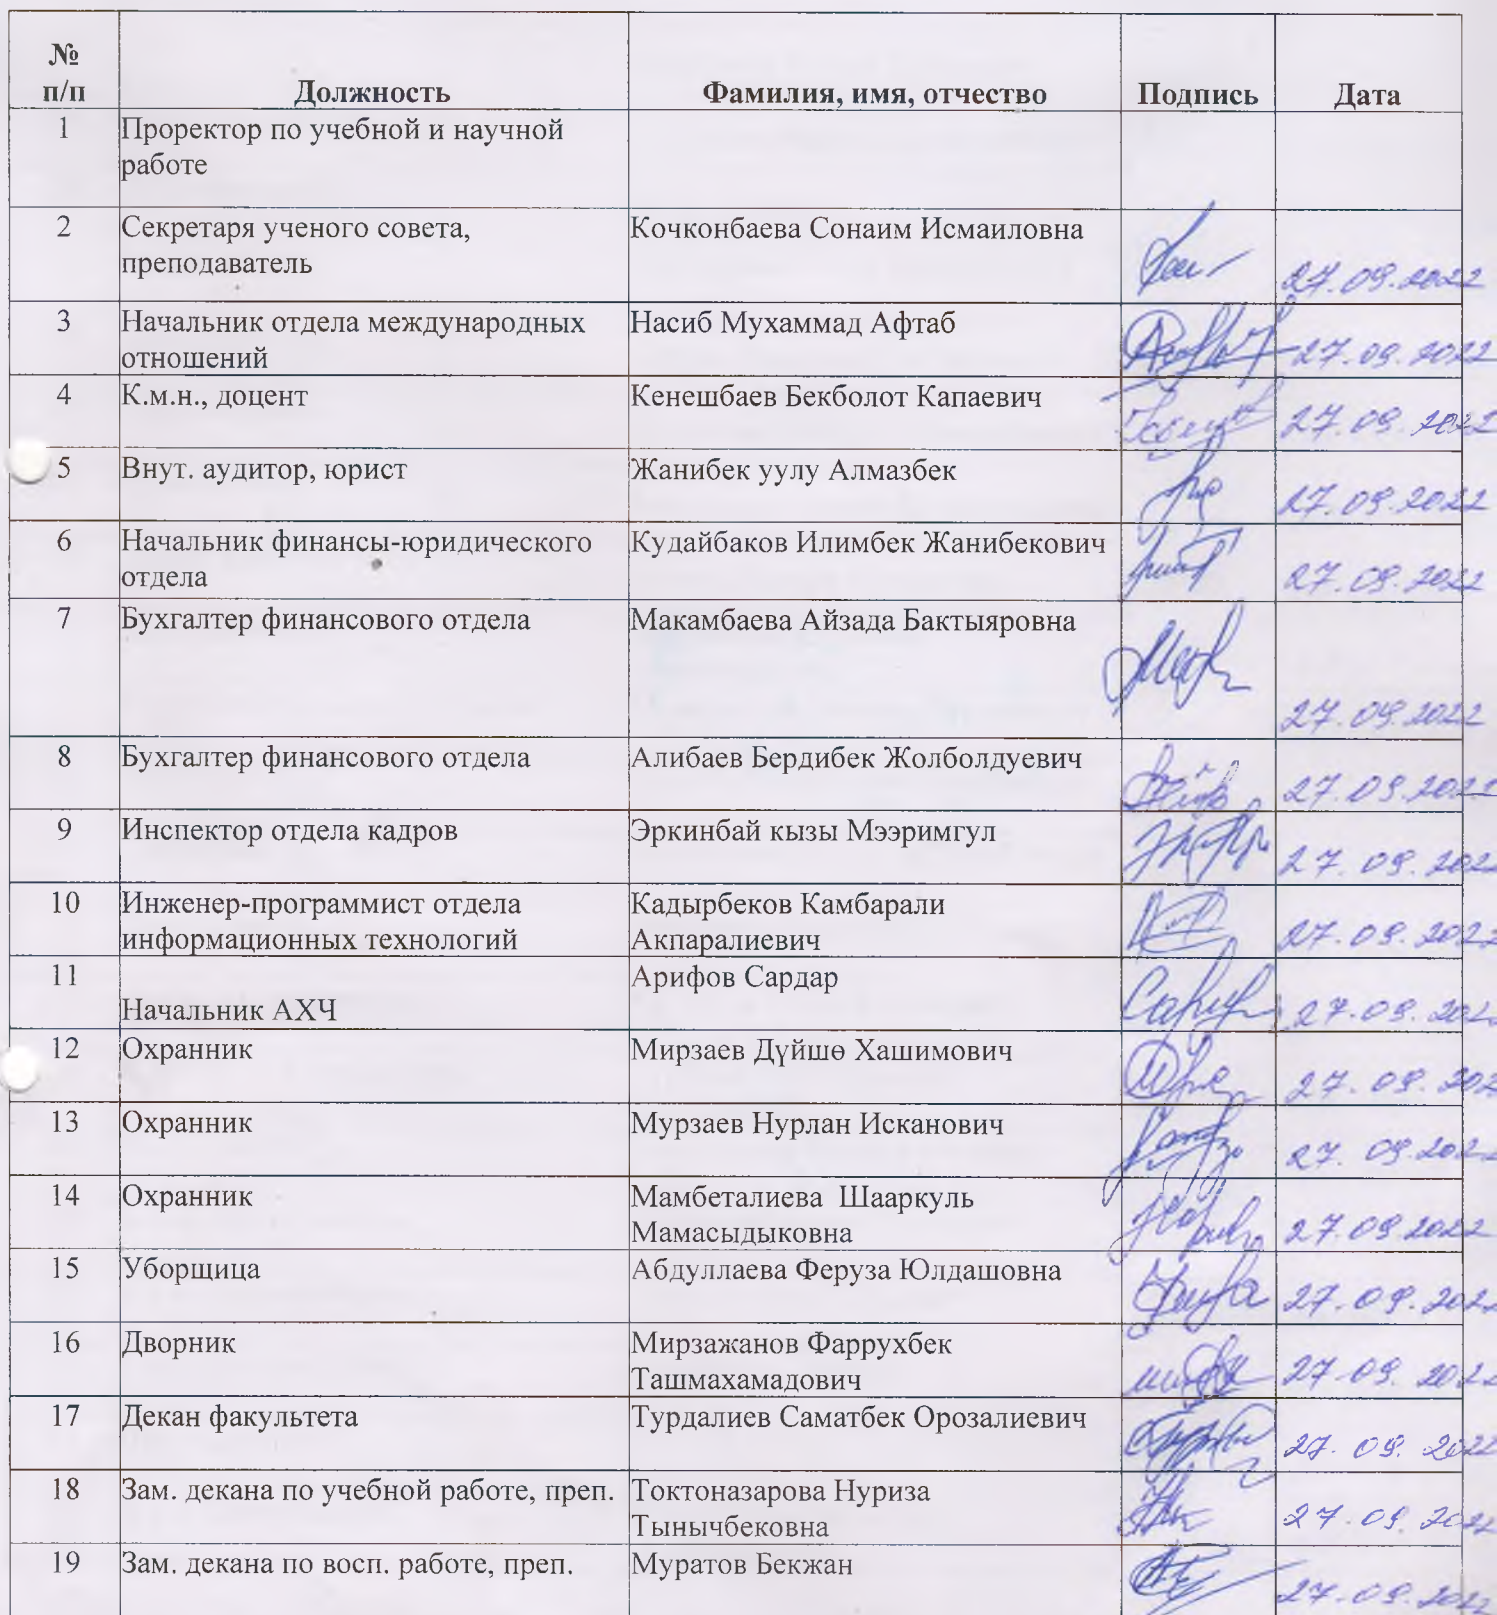 №
п/п Должность Фамилия, имя, отчество Подпись Дата
1 Проректор по учебной и научной
работе
2 Секретаря ученого совета, Кочконбаева Сонаим Исмаиловна
преподаватель
27.09.2022
3 Начальник отдела международных Насиб Мухаммад Афтаб
отношений
27.09.2022
4 К.м.н., доцент Кенешбаев Бекболот Капаевич
27.09.2022
5 Внут. аудитор, юрист Жанибек уулу Алмазбек
27.09.2022
6 Начальник финансы-юридического Кудайбаков Илимбек Жанибекович
отдела
27.09.2022
7 Бухгалтер финансового отдела Макамбаева Айзада Бактыяровна
27.09.2022
8 Бухгалтер финансового отдела Алибаев Бердибек Жолболдуевич
27.09.2022
9 Инспектор отдела кадров Эркинбай кызы Мээримгул
27.09.2022
10 Инженер-программист отдела Кадырбеков Камбарали
информационных технологий Акпаралиевич
27.09.2022
11 Арифов Сардар
Начальник АХЧ
27.09.2022
12 Охранник Мирзаев Дүйшө Хашимович
27.09.202
13 Охранник Мурзаев Нурлан Исканович
27.09.2022
14 Охранник Мамбеталиева Шааркуль
Мамасыдыковна
27.09.2022
15 Уборщица Абдуллаева Феруза Юлдашовна
27.09.2022
16 Дворник Мирзажанов Фаррухбек
Ташмахамадович
27.09.2022
17 Декан факультета Турдалиев Саматбек Орозалиевич
27.09.2022
18 Зам. декана по учебной работе, преп. Токтоназарова Нуриза
Тынычбековна
27.09.2022
19 Зам. декана по восп. работе, преп. Муратов Бекжан
27.09.2022